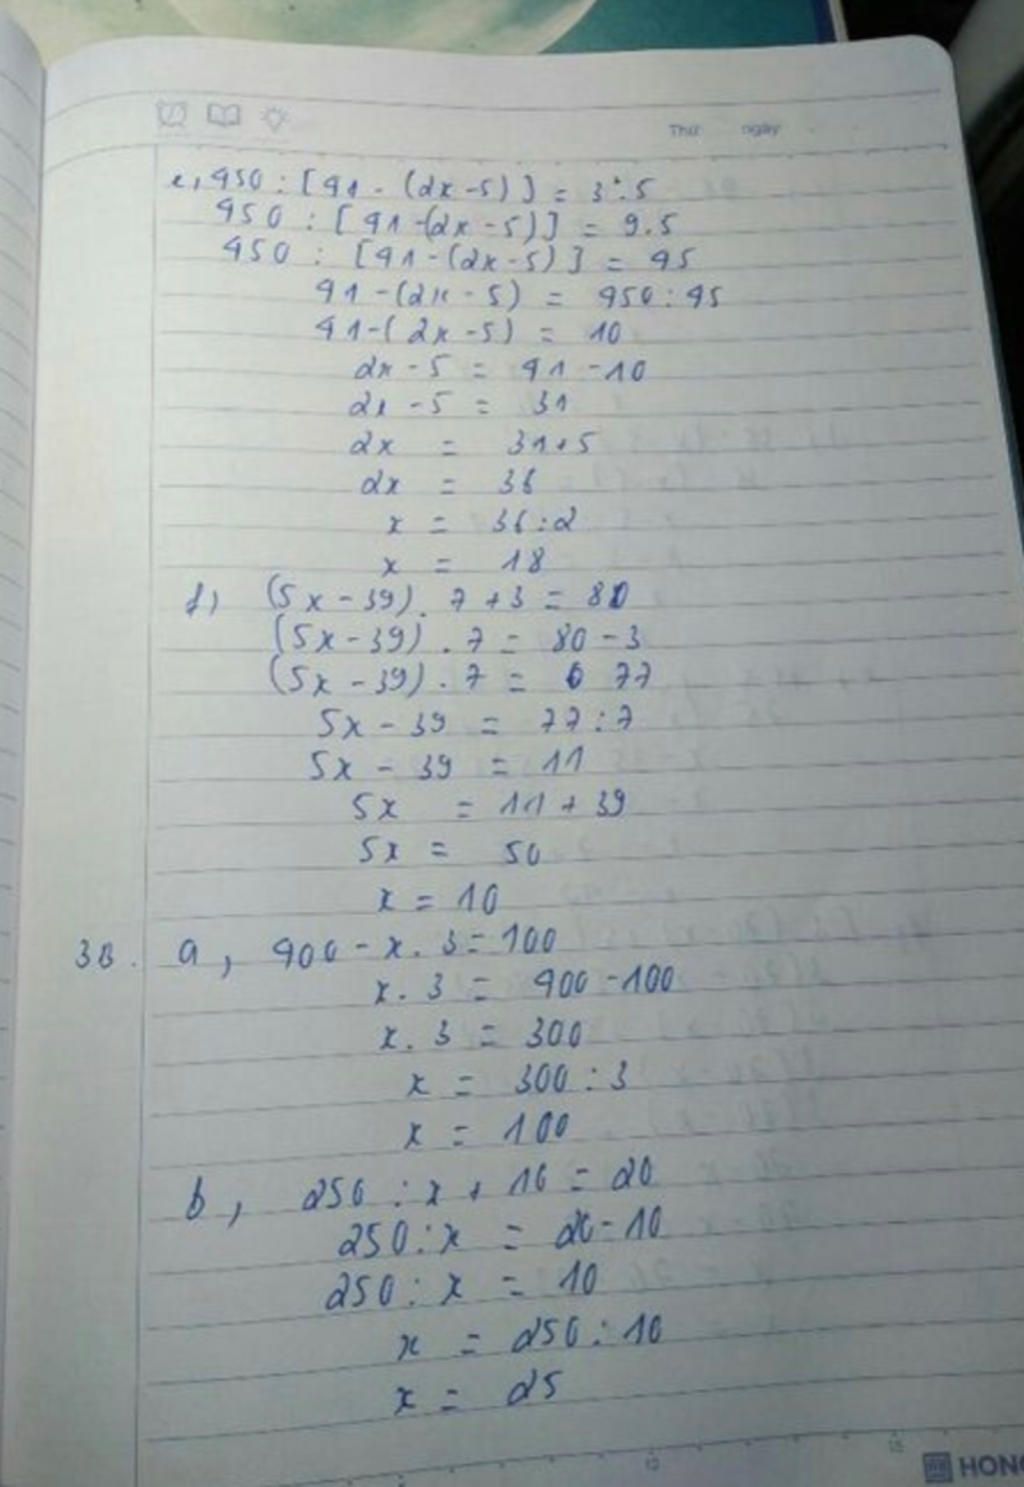 Thứ ngày
e, 450 : [41 - (2x - 5)] = 3² . 5
450 : [41 - (2x - 5)] = 9 . 5
450 : [41 - (2x - 5)] = 45
41 - (2x - 5) = 450 : 45
41 - (2x - 5) = 10
2x - 5 = 41 - 10
2x - 5 = 31
2x = 31 + 5
2x = 36
x = 36 : 2
x = 18
f) (5x - 39) . 7 + 3 = 80
(5x - 39) . 7 = 80 - 3
(5x - 39) . 7 = 77
5x - 39 = 77 : 7
5x - 39 = 11
5x = 11 + 39
5x = 50
x = 10
3B. a, 400 - x . 3 = 100
x . 3 = 400 - 100
x . 3 = 300
x = 300 : 3
x = 100
b, 250 : x + 10 = 20
250 : x = 20 - 10
250 : x = 10
x = 250 : 10
x = 25
10 15
HONG